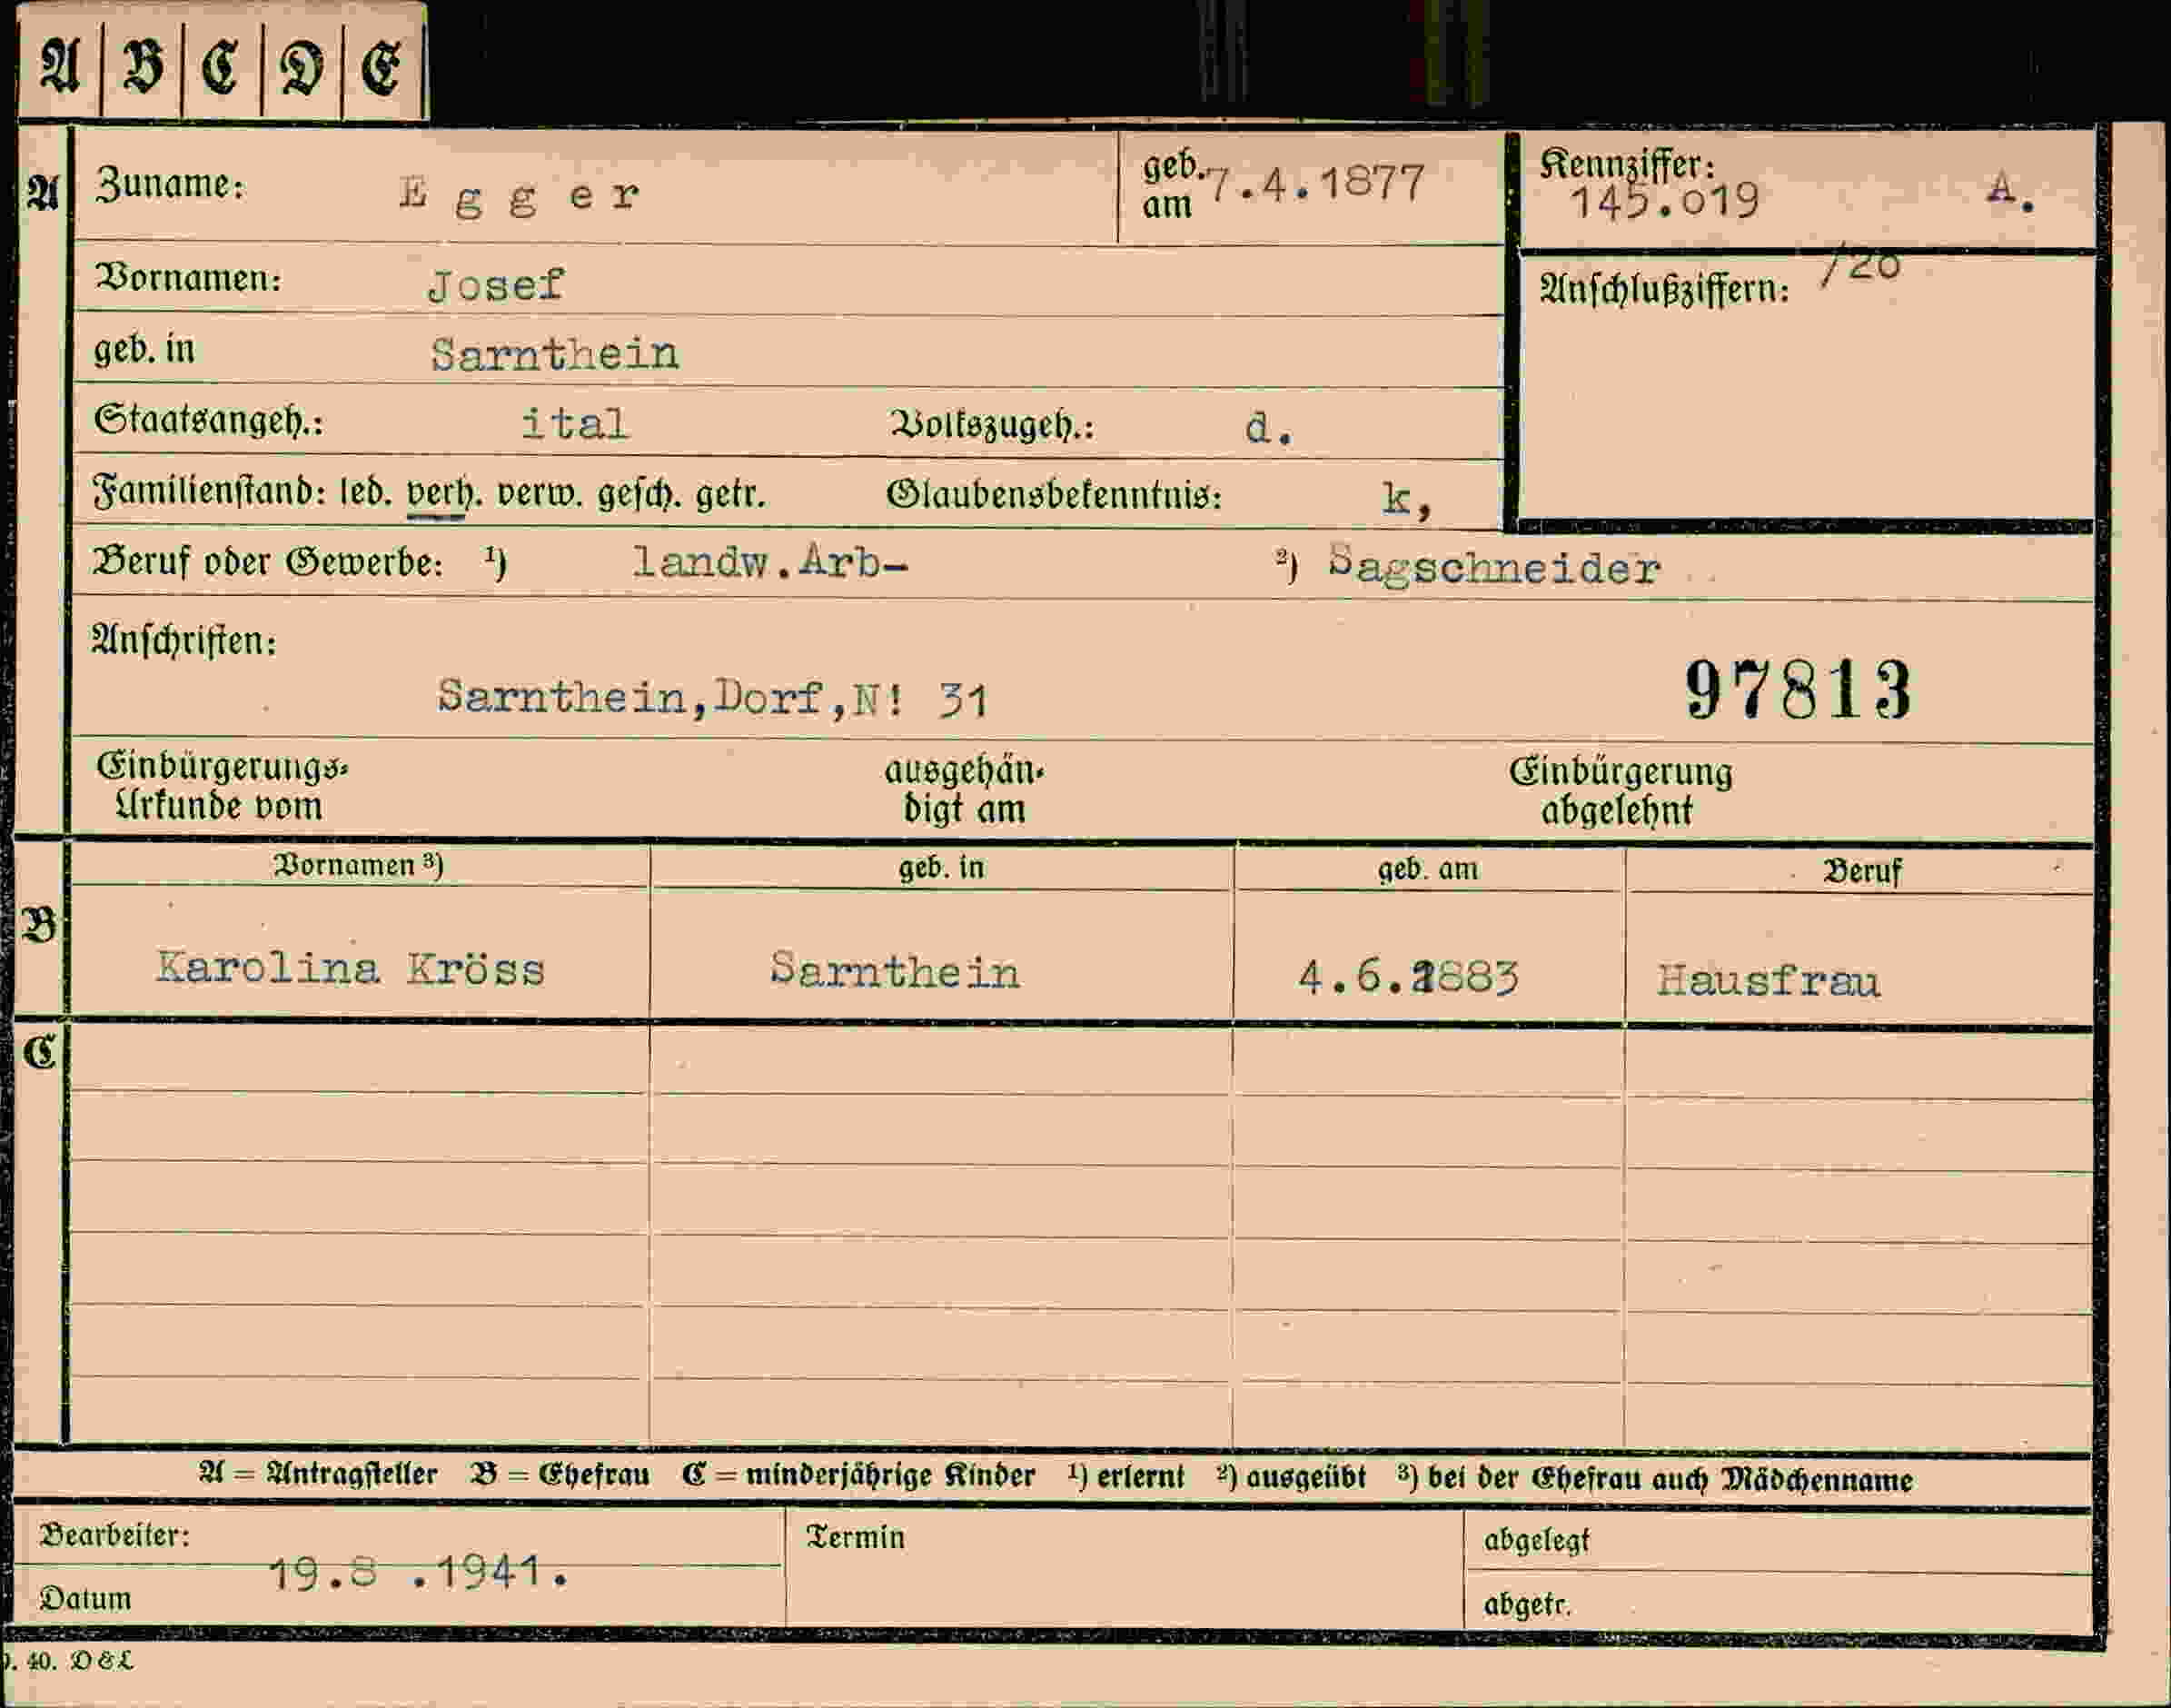 A B C D E
A Zuname: Egger geb. am 7.4.1877 Kennziffer: 145.019 A.
Vornamen: Josef Anschlußziffern: /20
geb. in Sarnthein
Staatsangeh.: ital Volkszugeh.: d.
Familienstand: led. verh. verw. gesch. getr. Glaubensbekenntnis: k,
Beruf oder Gewerbe: ¹) landw.Arb- ²) Sagschneider
Anschriften:
Sarnthein,Dorf,N! 31 97813
Einbürgerungs- ausgehän- Einbürgerung
Urkunde vom digt am abgelehnt
Vornamen ³) geb. in geb. am Beruf
B
Karolina Kröss Sarnthein 4.6.1883 Hausfrau
C
A = Antragsteller B = Ehefrau C = minderjährige Kinder ¹) erlernt ²) ausgeübt ³) bei der Ehefrau auch Mädchenname
Bearbeiter: Termin abgelegt
19.8 .1941.
Datum abgetr.
40. D & L